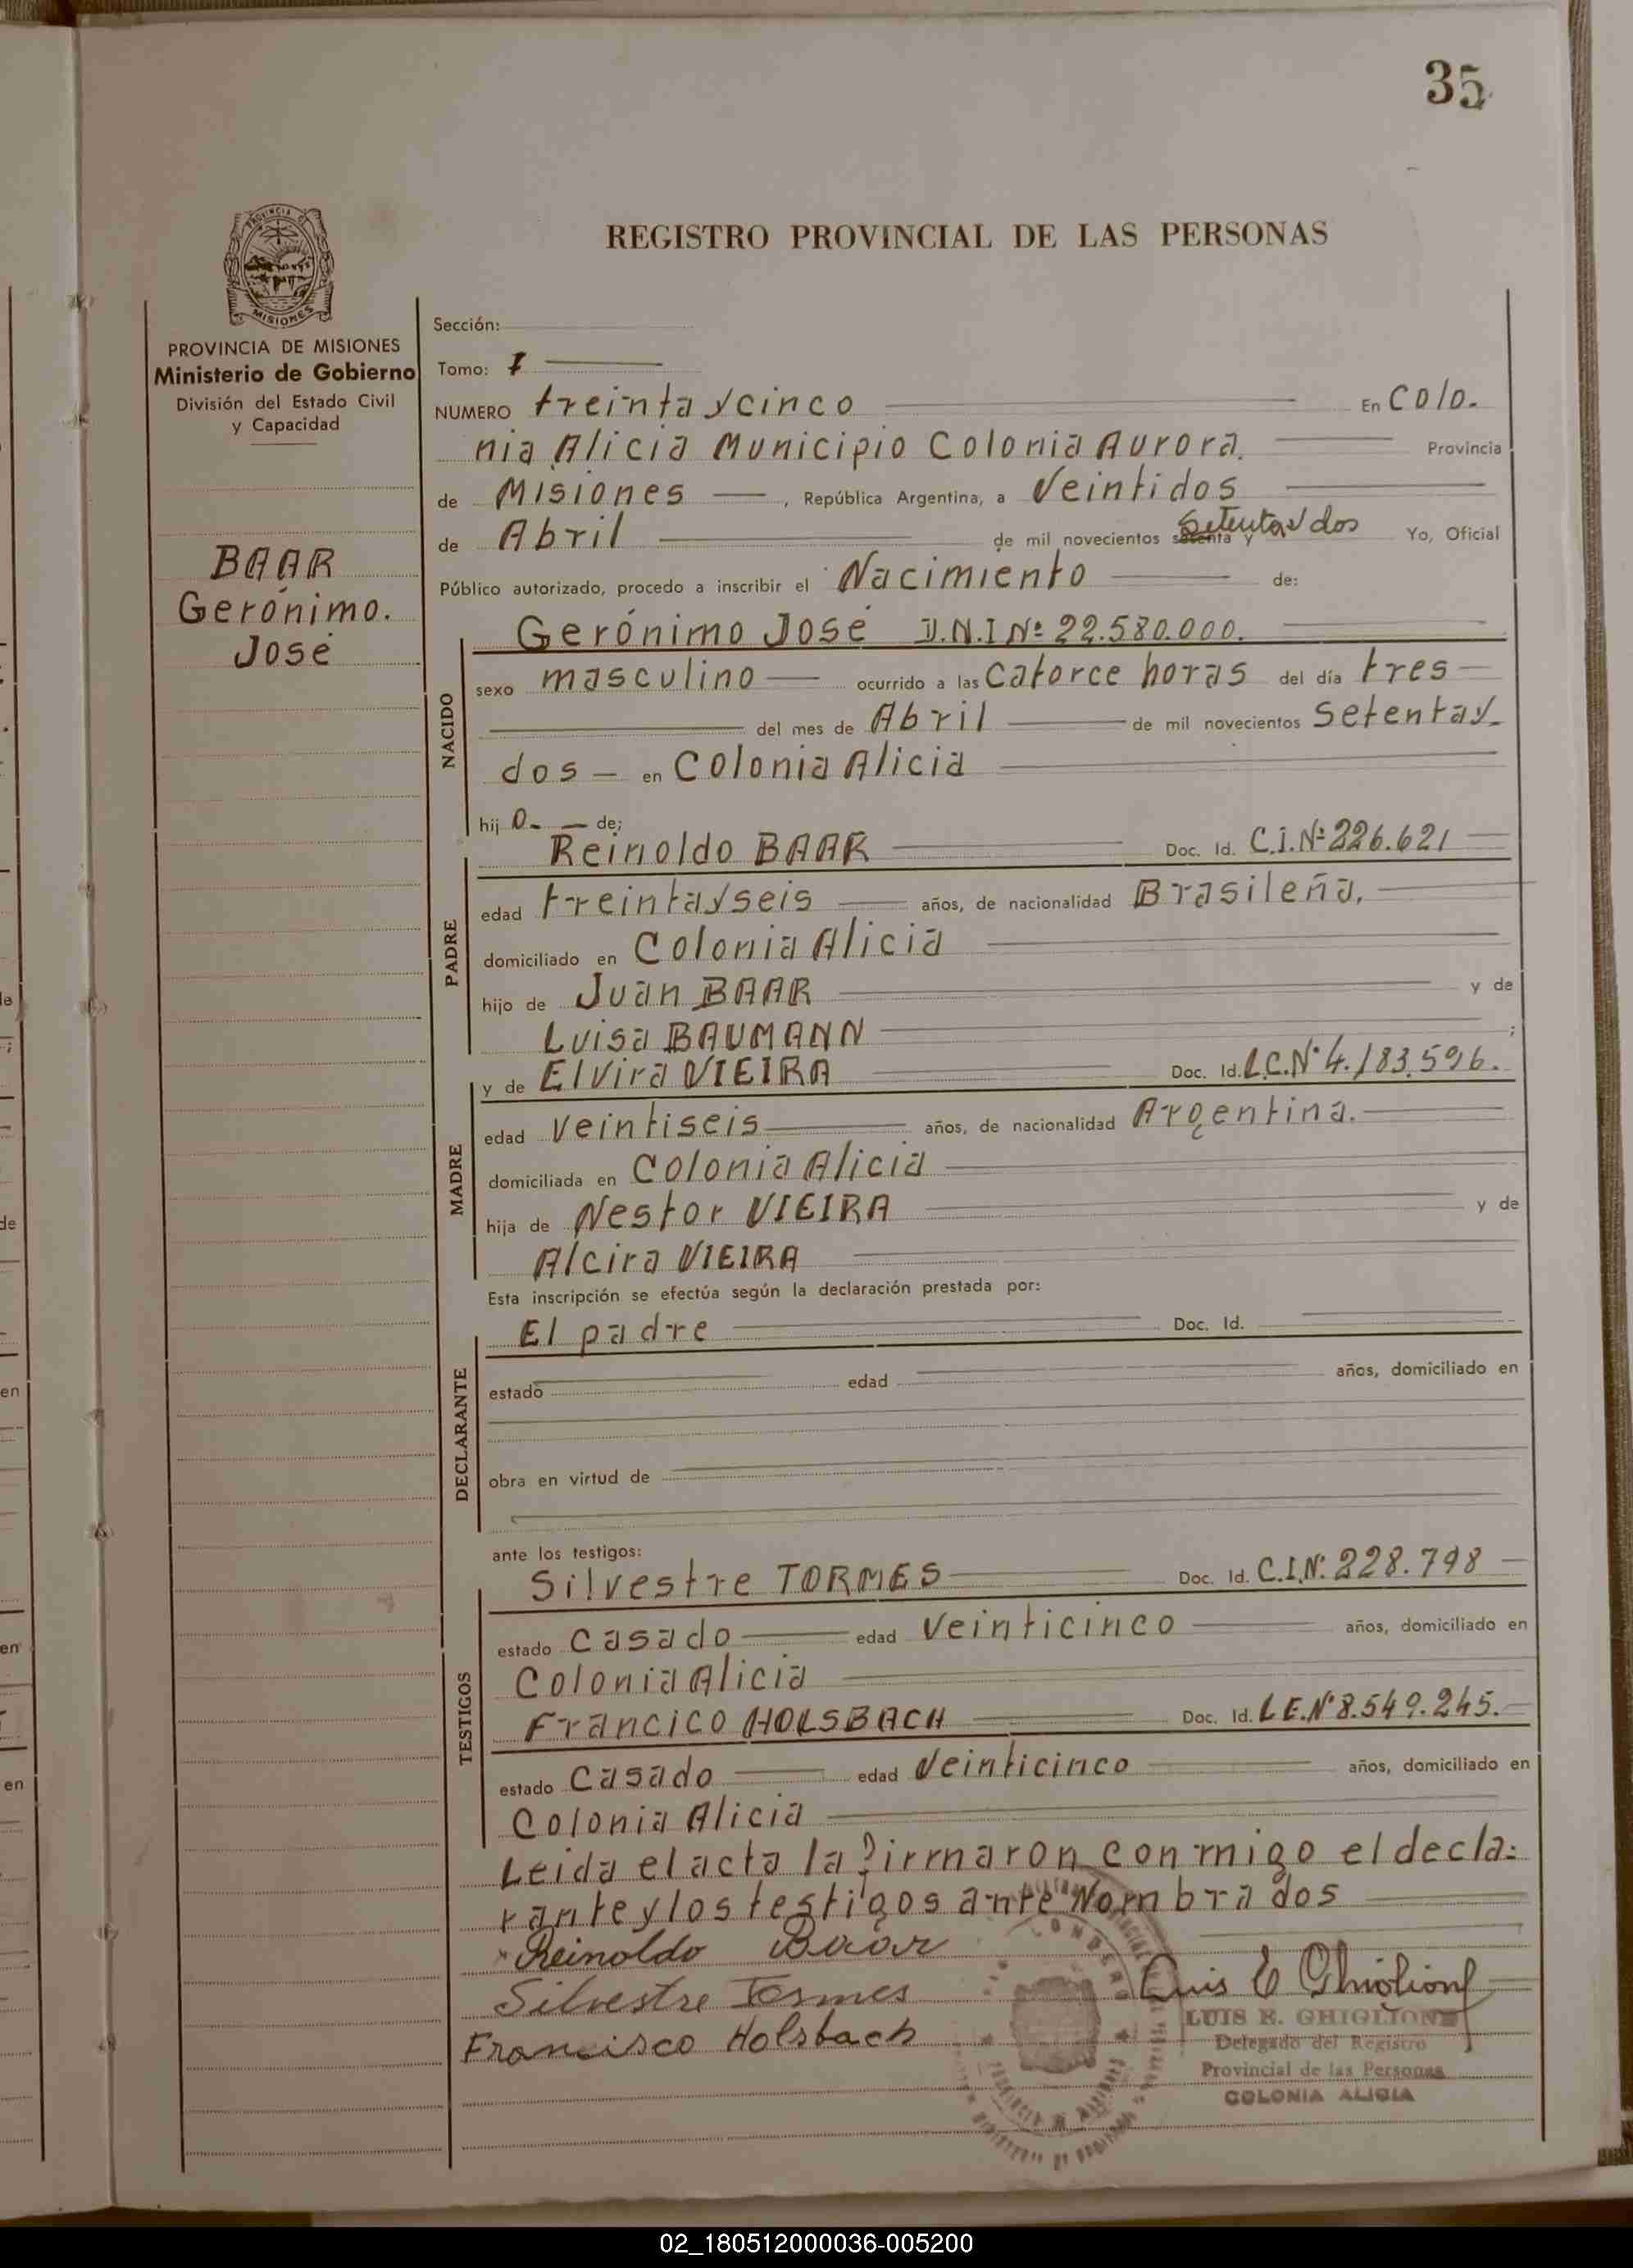 35
REGISTRO PROVINCIAL DE LAS PERSONAS
PROVINCIA DE MISIONES
Ministerio de Gobierno
División del Estado Civil
y Capacidad
BAAR
Gerónimo.
José
Sección:
Tomo: I
NUMERO treinta y cinco En Colo-
nia Alicia Municipio Colonia Aurora. Provincia
de Misiones, República Argentina, a Veintidos
de Abril de mil novecientos setenta y dos Yo, Oficial
Público autorizado, procedo a inscribir el Nacimiento de:
NACIDO
Gerónimo José D.N.I Nº 22.580.000.
sexo masculino ocurrido a las catorce horas del día tres
del mes de Abril de mil novecientos Setenta y
dos en Colonia Alicia
hijo de:
PADRE
Reinoldo BAAR Doc. Id. C.I.Nº 226.621
edad treinta y seis años, de nacionalidad Brasileña,
domiciliado en Colonia Alicia
hijo de Juan BAAR y de
Luisa BAUMANN ;
MADRE
y de Elvira VIEIRA Doc. Id. L.C.Nº 4.183.596.
edad veintiseis años, de nacionalidad Argentina.
domiciliada en Colonia Alicia
hija de Nestor VIEIRA y de
Alcira VIEIRA
Esta inscripción se efectúa según la declaración prestada por:
DECLARANTE
El padre Doc. Id.
estado edad años, domiciliado en
obra en virtud de
ante los testigos:
TESTIGOS
Silvestre TORMES Doc. Id. C.I.Nº 228.798
estado Casado edad veinticinco años, domiciliado en
Colonia Alicia
Francico HOLSBACH Doc. Id. L.E.Nº 8.549.245.
estado Casado edad Veinticinco años, domiciliado en
Colonia Alicia
Leida el acta la firmaron conmigo el decla-
rante y los testigos ante Nombrados
Reinoldo Baar
Silvestre Tormes
Francisco Holsbach
Luis E Ghiglione
LUIS E. GHIGLIONE
Delegado del Registro
Provincial de las Personas
COLONIA ALICIA
02_180512000036-005200